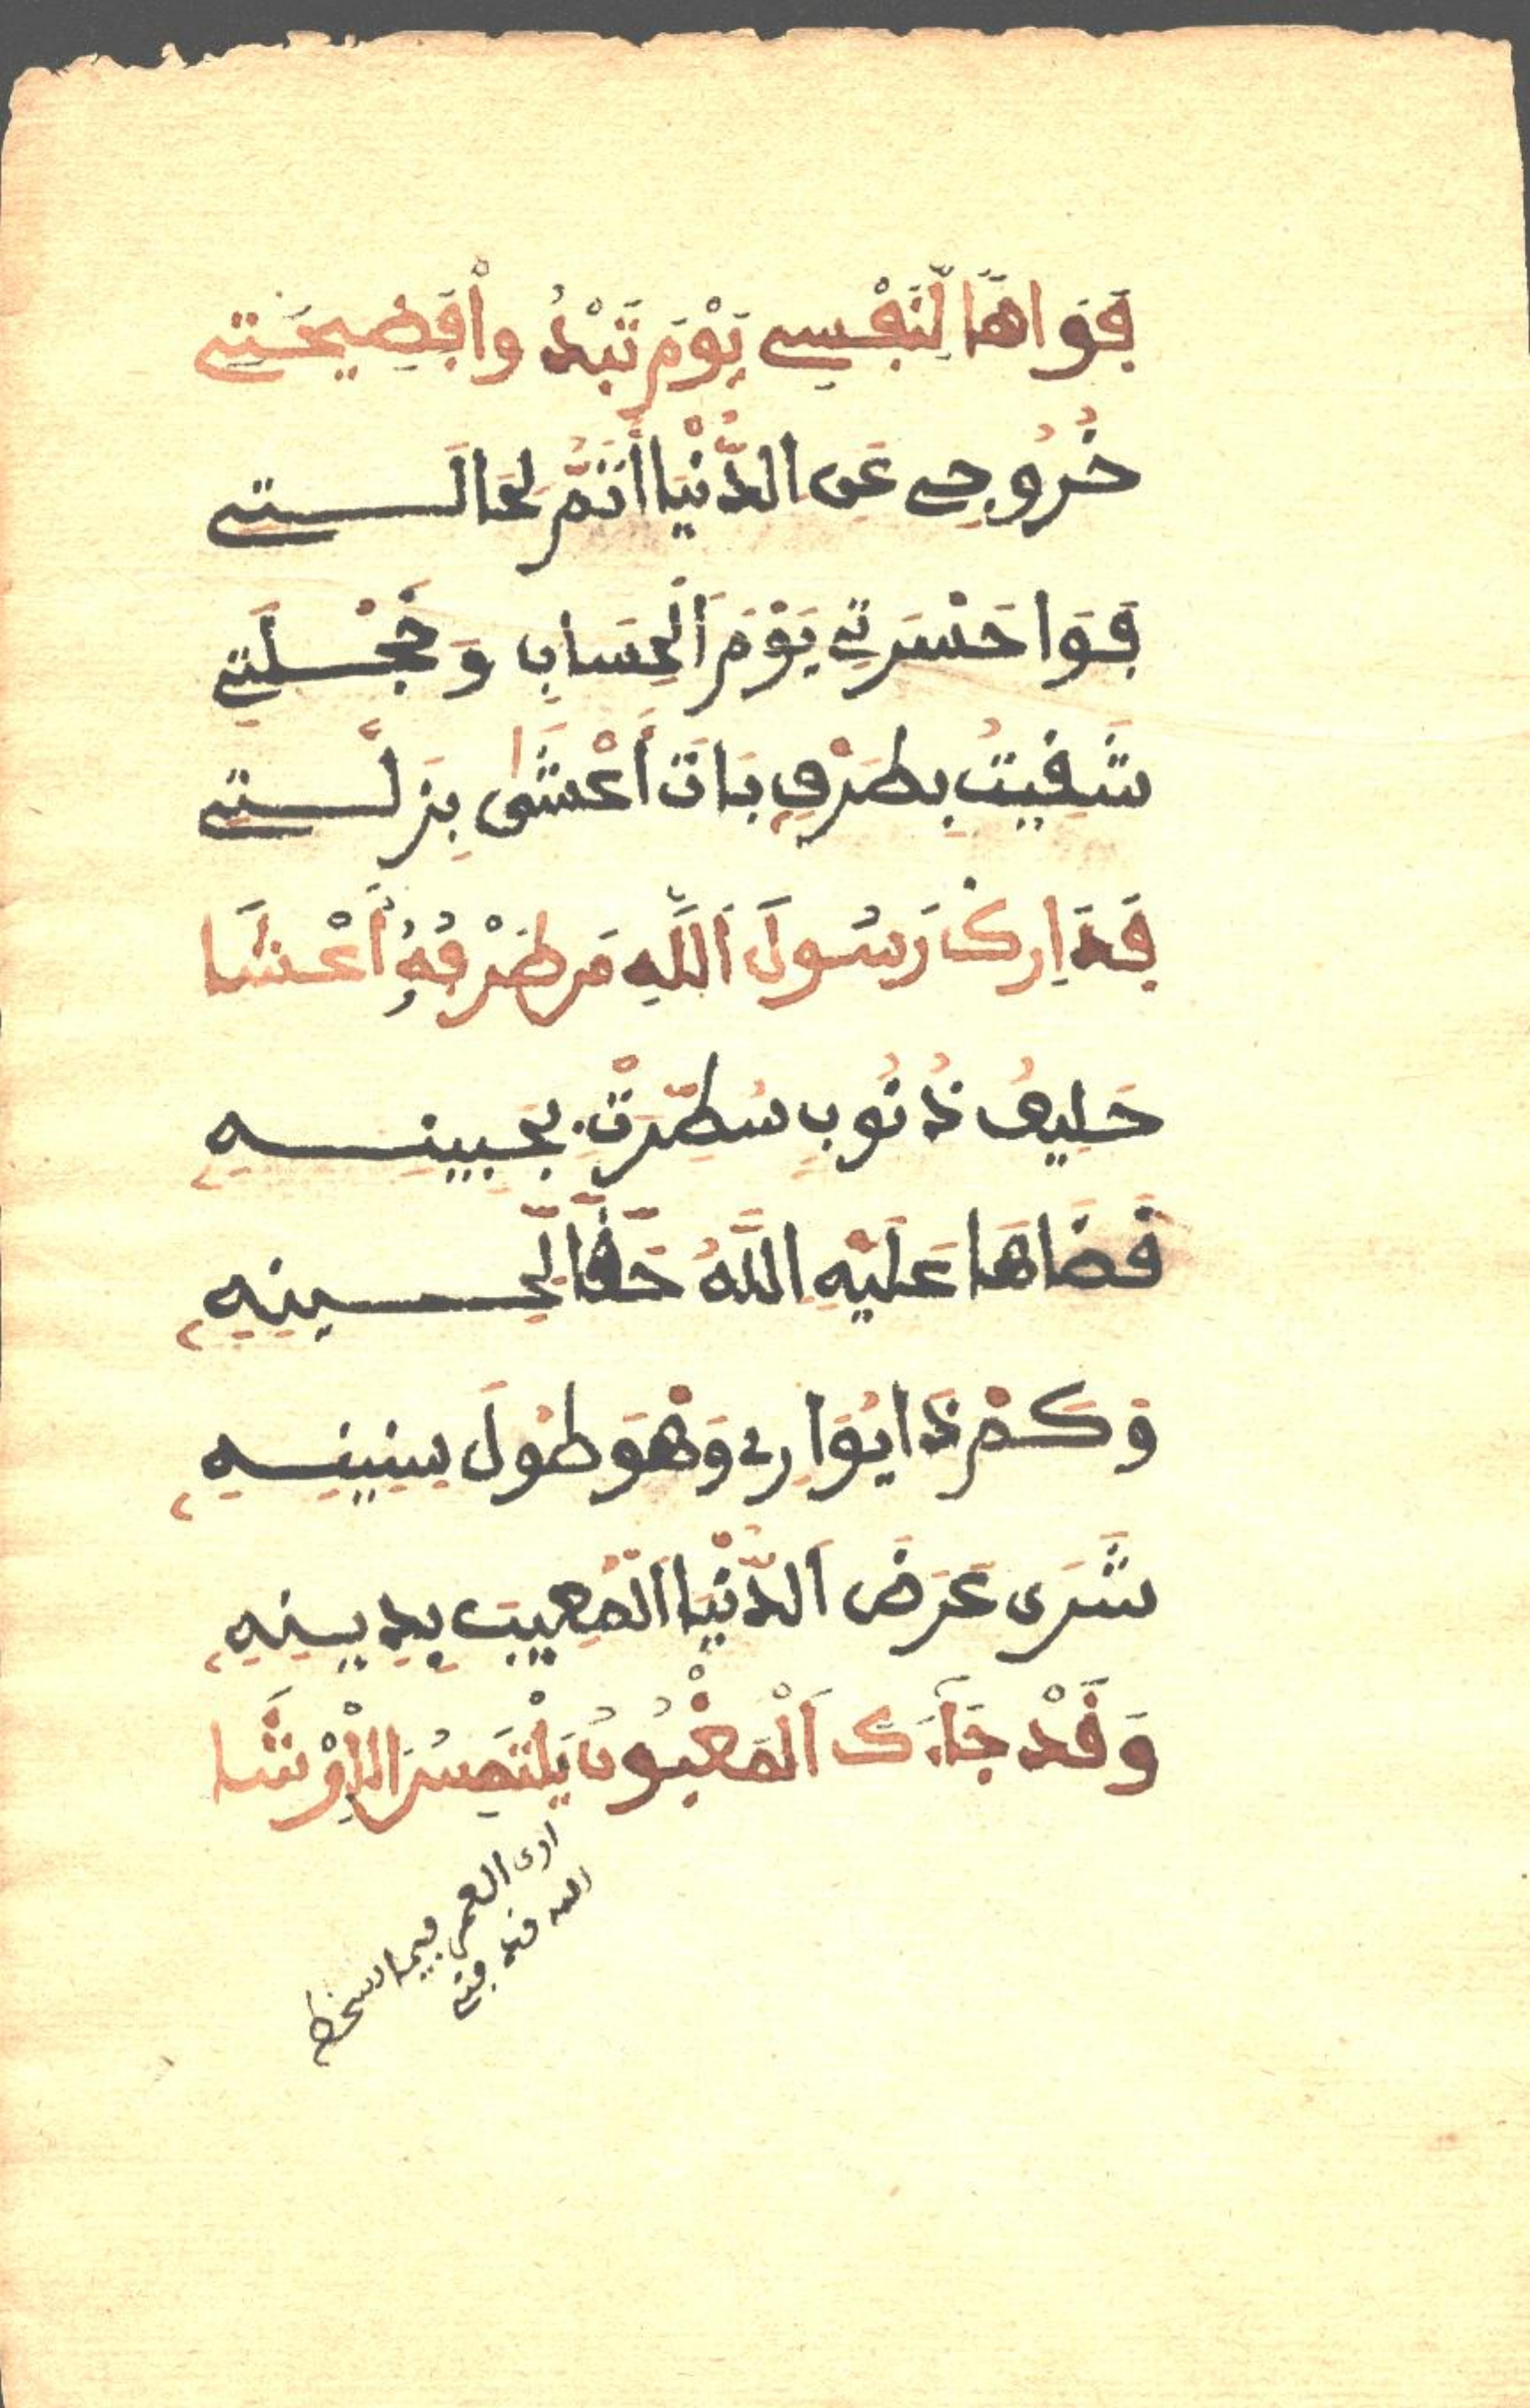 فَوَاهًا لِّنَفْسِي يَوْمَ تَبْدُ وأْفَضِيحَتِي
خُرُوجِي عَنِ الدُّنْيَا أَتَمُّ لِحَالَـــتِي
فَوَا حَسْرَتِي يَوْمَ الْحِسَابِ وَخَجْـلَتِي
شَقِيتُ بِطَرْفٍ بَاتَ أَعْشَى بِزَلَّـــتِي
فَدَارِكْ رَسُولَ اللَّهِ مَن طَرْفُهُ أَعْشَا
حَلِيفُ ذُنُوبٍ سُطِّرَتْ بِجَبِينِـــهِ
قَضَاهَا عَلَيْهِ اللَّهُ حَقًّا لِّحِـــينِهِ
وَكَمْ ذَا يُوَارِي وَهْوَ طُولَ سِنِينِـــهِ
شَرَى عَرَضَ الدُّنْيَا الْمَعِيبَ بِدِيـنِهِ
وَقَدْ جَآءَكَ الْمَغْبُونُ يَلْتَمِسُ الْأَرْشَا
ارى العمر فيما اسخط
الله قد فنى